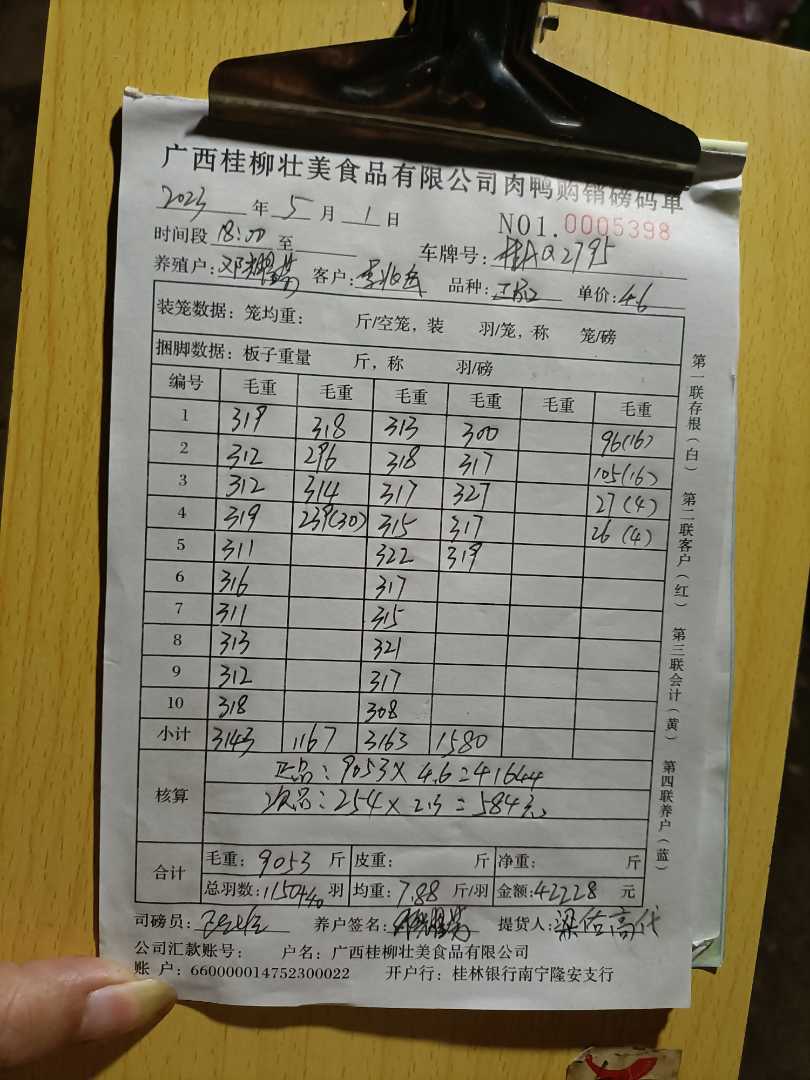 广西桂柳壮美食品有限公司肉鸭购销磅码单
2023 年 5 月 1 日 NO1.0005398
时间段 18:00 至 车牌号: 桂AQ2795
养殖户: 邓 客户: 李 品种: 单价: 4.6
装笼数据: 笼均重: 斤/空笼, 装 羽/笼, 称 笼/磅
捆脚数据: 板子重量 斤, 称 羽/磅
编号 毛重 毛重 毛重 毛重 毛重 毛重
1 319 318 313 300 96(16)
2 312 296 318 317 105(16)
3 312 314 317 327 27(4)
4 319 239(30) 315 317 26(4)
5 311 322 319
6 316 317
7 311 315
8 313 321
9 312 317
10 318 308
小计 3143 1167 3163 1580
核算 正品: 9053×4.6=41644
次品: 254×2.3=584元
合计 毛重: 9053 斤 皮重: 斤 净重: 斤
总羽数: 1150+40 羽 均重: 7.88 斤/羽 金额: 42228 元
司磅员: 养户签名: 提货人: 梁佑高代
公司汇款账号: 户名: 广西桂柳壮美食品有限公司
账 户: 660000014752300022 开户行: 桂林银行南宁隆安支行
第一联存根(白) 第二联客户(红) 第三联会计(黄) 第四联养户(蓝)